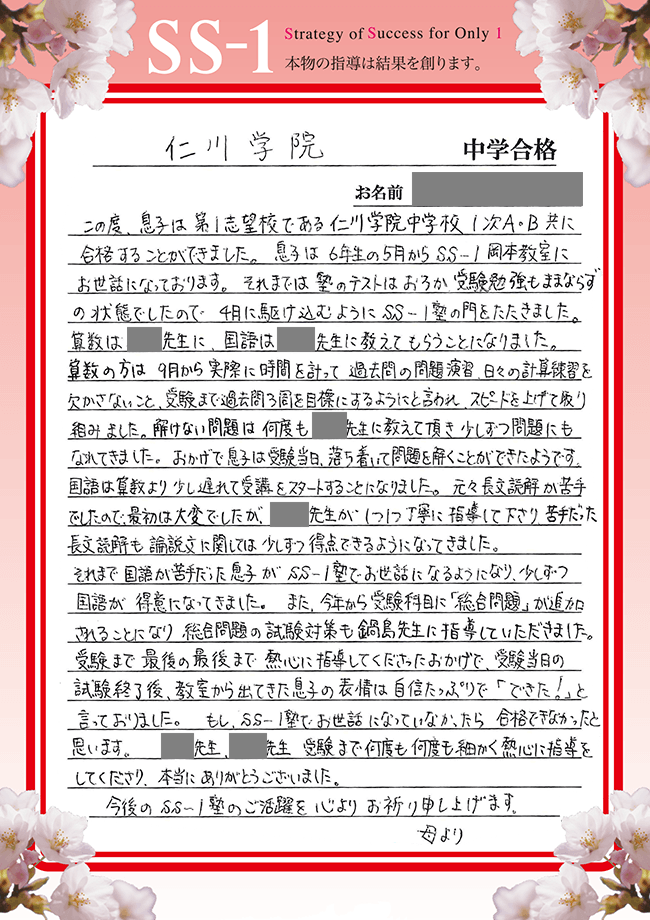 SS-1
Strategy of Success for Only 1
本物の指導は結果を創ります。
仁川学院 中学合格
お名前
この度、息子は第1志望校である仁川学院中学校1次A・B共に
合格することができました。息子は6年生の5月からSS-1岡本教室に
お世話になっております。それまでは塾のテストはおろか受験勉強もままならず
の状態でしたので4月に駆け込むようにSS-1塾の門をたたきました。
算数は 先生に、国語は 先生に教えてもらうことになりました。
算数の方は9月から実際に時間を計って過去問の問題演習、日々の計算練習を
欠かさないこと、受験まで過去問3周を目標にするようにと言われ、スピードを上げて取り
組みました。解けない問題は何度も 先生に教えて頂き少しずつ問題にも
なれてきました。おかげで息子は受験当日、落ち着いて問題を解くことができたようです。
国語は算数より少し遅れて受講をスタートすることになりました。元々長文読解が苦手
でしたので最初は大変でしたが、 先生が1つ1つ丁寧に指導して下さり、苦手だった
長文読解も論説文に関しては少しずつ得点できるようになってきました。
それまで国語が苦手だった息子がSS-1塾でお世話になるようになり、少しずつ
国語が得意になってきました。また、今年から受験科目に「総合問題」が追加
されることになり総合問題の試験対策も鍋島先生に指導していただきました。
受験まで最後の最後まで熱心に指導してくださったおかげで、受験当日の
試験終了後、教室から出てきた息子の表情は自信たっぷりで「できた!」と
言っておりました。もし、SS-1塾でお世話になっていなかったら合格できなかったと
思います。 先生、 先生 受験まで何度も何度も細かく熱心に指導を
してくださり、本当にありがとうございました。
今後のSS-1塾のご活躍を心よりお祈り申し上げます。
母より